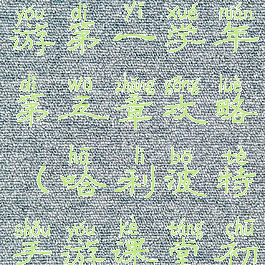 yóu dì yī xué nián
游第一学年
dì wǔ zhāng gōng lüè
第五章攻略
hā lì bō tè
（哈利波特
shǒu yóu kè táng chū
手游课堂初